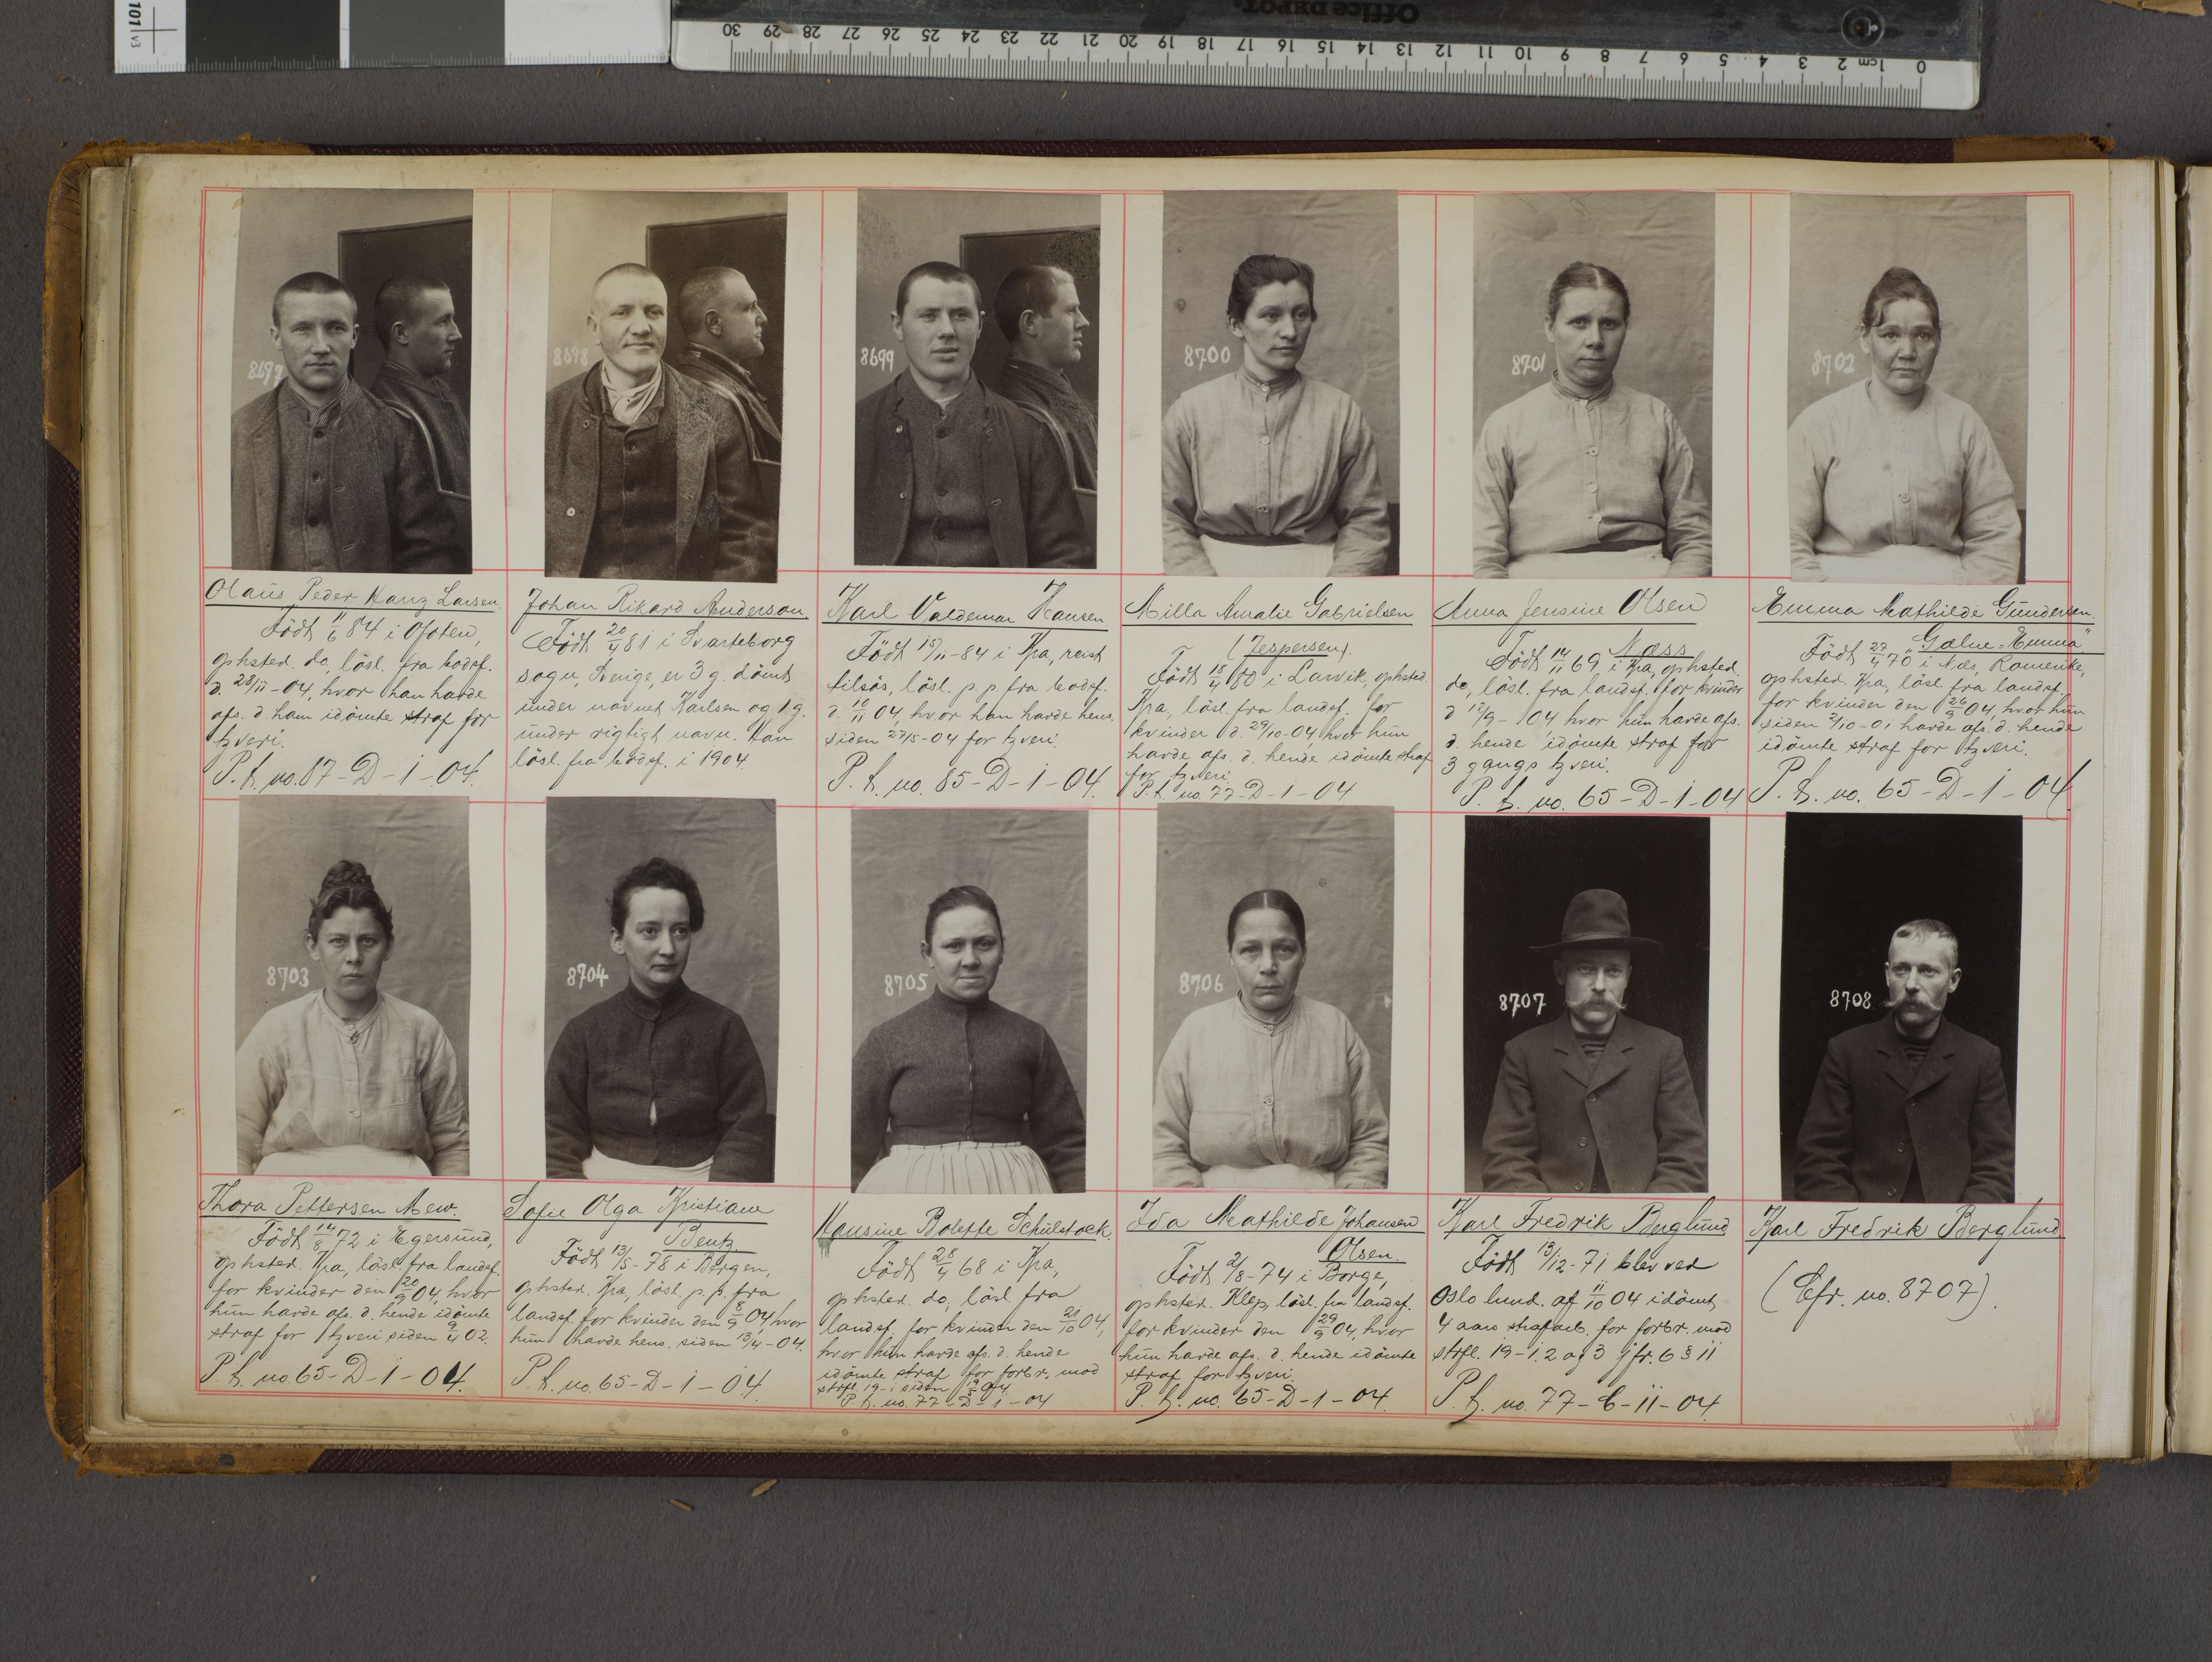 101 v3
Office DEPOT.
0 1cm 2 3 4 5 6 7 8 9 10 11 12 13 14 15 16 17 18 19 20 21 22 23 24 25 26 27 28 29 30
8697
Olaus Peder Hanz Larsen.
Födt 11/6 84 i Ofoten,
ophsted. do, lösl. fra bodsf.
d. 28/11-04, hvor han havde
afs. d ham idömte straf for
tyveri.
P. k. no. 87-D-1-04.
8698
Johan Rikard Anderson
Födt 20/4 81 i Svarteborg
sogn, Sverige, er 3 g. dömt
under navnet Karlsen og 1 g.
under rigtigt navn. Han
lösl. fra bodsf. i 1904
8699
Karl Valdemar Hansen
Födt 15/11-84 i Kra, reist
tilsös, lösl. p. p. fra bodsf.
d. 10/11 04, hvor han havde hens.
siden 27/5-04 for tyveri.
P. k. no. 85-D-1-04.
8700
Milla Amalie Gabrielsen
(Jespersen).
Födt 15/4 80 i Larvik, ophsted.
Kra, lösl. fra landsf. for
kvinder d. 29/10-04, hvor hun
havde afs. d. hende idömte straf
for tyveri.
P. k. no. 77-D-1-04
8701
Anna Jensine Olsen
Næss
Födt 14/11 69 i Kra, ophsted.
do, lösl. fra landsf. for kvinder
d 12/9-04 hvor hun havde afs.
d. hende idömte straf for
3 gangs tyveri.
P. k. no. 65-D-1-04
8702
Emma Mathilde Gundersen.
"Galne-Emma"
Födt 27/4 70 i Næs, Romerike,
ophsted. Kra, lösl. fra landsf.
for kvinder den 26/9 04, hvor hun
siden 2/10-01 havde afs. d. hende
idömte straf for tyveri.
P. k. no. 65-D-1-04
8703
Thora Pettersen Mew.
Födt 14/8 72 i Egersund,
ophsted. Kra, lösl. fra landsf.
for kvinder den 20/9 04, hvor
hun havde afs. d. hende idömte
straf for tyveri siden 9/4 02.
P. k. no. 65-D-1-04.
8704
Sofie Olga Kristiane
Bentz.
Födt 13/5-78 i Bergen,
ophsted. Kra, lösl. p. p. fra
landsf. for kvinder den 8/9 04, hvor
hun havde hens. siden 13/4-04.
P. k. no. 65-D-1-04.
8705
Hansine Bolette Schulstock.
Födt 28/4 68 i Kra,
ophsted. do, lösl. fra
landsf. for kvinder den 21/10 04,
hvor hun havde afs. d. hende
idömte straf for forbr. mod
strfl. 19-1 siden 04.
P. k. no. 77-D-1-04
8706
Ida Mathilde Johansen
Olsen.
Födt 2/8-74 i Borge,
ophsted. Klep, lösl. fra landsf.
for kvinder den 29/9 04, hvor
hun havde afs. d. hende idömte
straf for tyveri.
P. k. no. 65-D-1-04.
8707
Karl Fredrik Berglund
Födt 13/12-71 blev ved
Oslo lund. af 11/10 04 idömt
4 aars strafarb. for forbr. mod
strfl. 19-1, 2 og 3 jfr. 6 § 11
P. k. no. 77-C-11-04.
8708
Karl Fredrik Berglund
(Cfr. no. 8707).